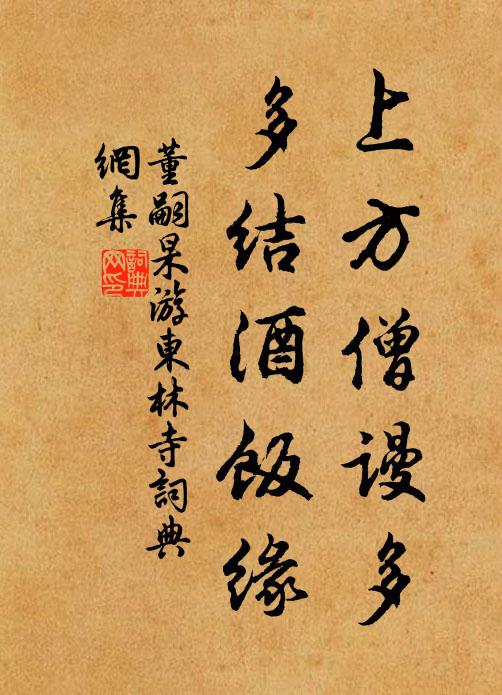 上方僧谩多
多结酒飯缘
董嗣杲游東林寺詞典
網集
詞典
网印